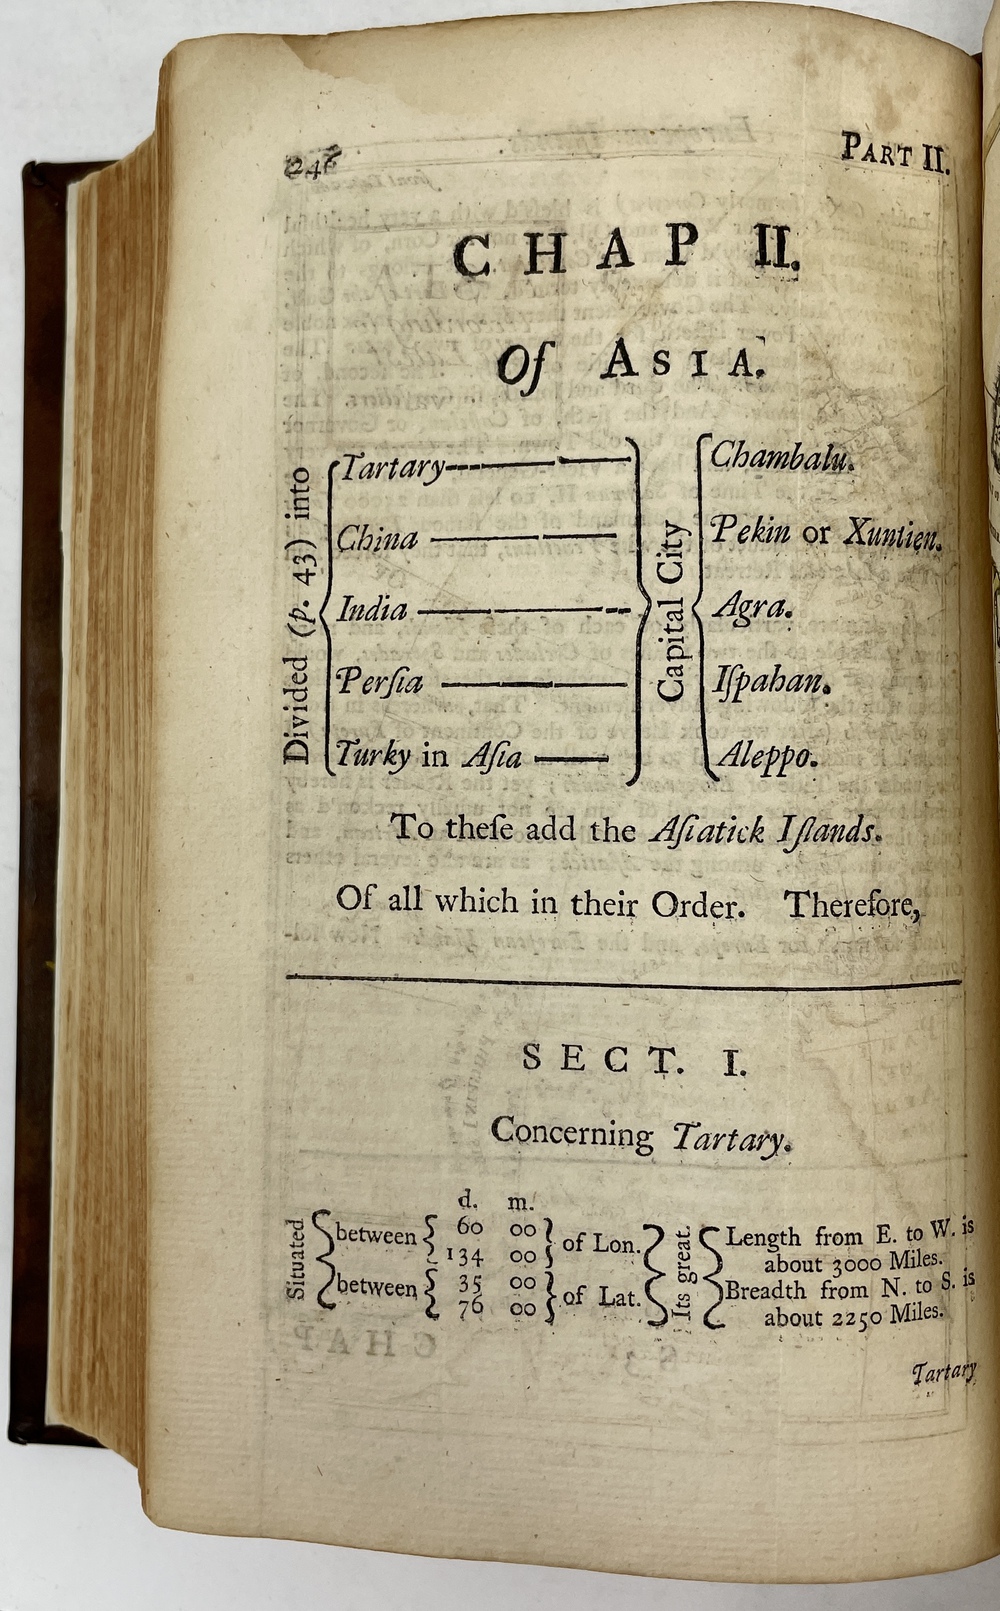 246 PART II.
CHAP II.
Of ASIA.
Divided (p. 43) into
Tartary Chambalu.
China Pekin or Xuntien.
India Agra.
Perſia Iſpahan.
Turky in Aſia Aleppo.
Capital City
To theſe add the Aſiatick Iſlands.
Of all which in their Order. Therefore,
SECT. I.
Concerning Tartary.
Situated
d. m.
between { 60 00 } of Lon.
134 00
between { 35 00 } of Lat.
76 00
Its great.
Length from E. to W. is
about 3000 Miles.
Breadth from N. to S. is
about 2250 Miles.
Tartary